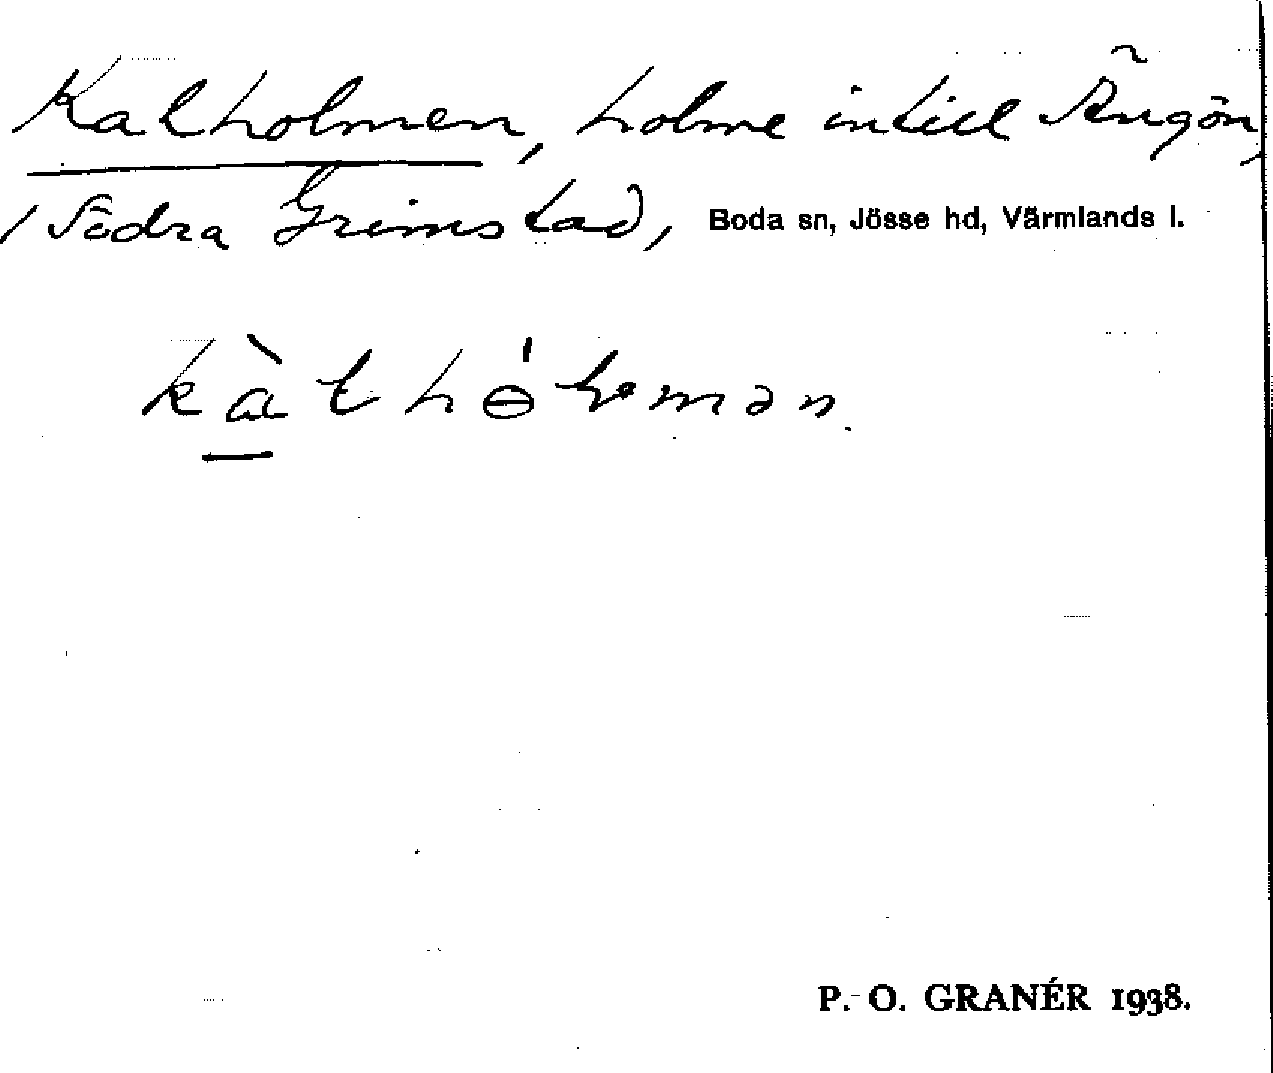 Kalholmen, holme intill Ängön,
Södra Grimstad, Boda sn, Jösse hd, Värmlands l.
P. O. GRANÉR 1938.